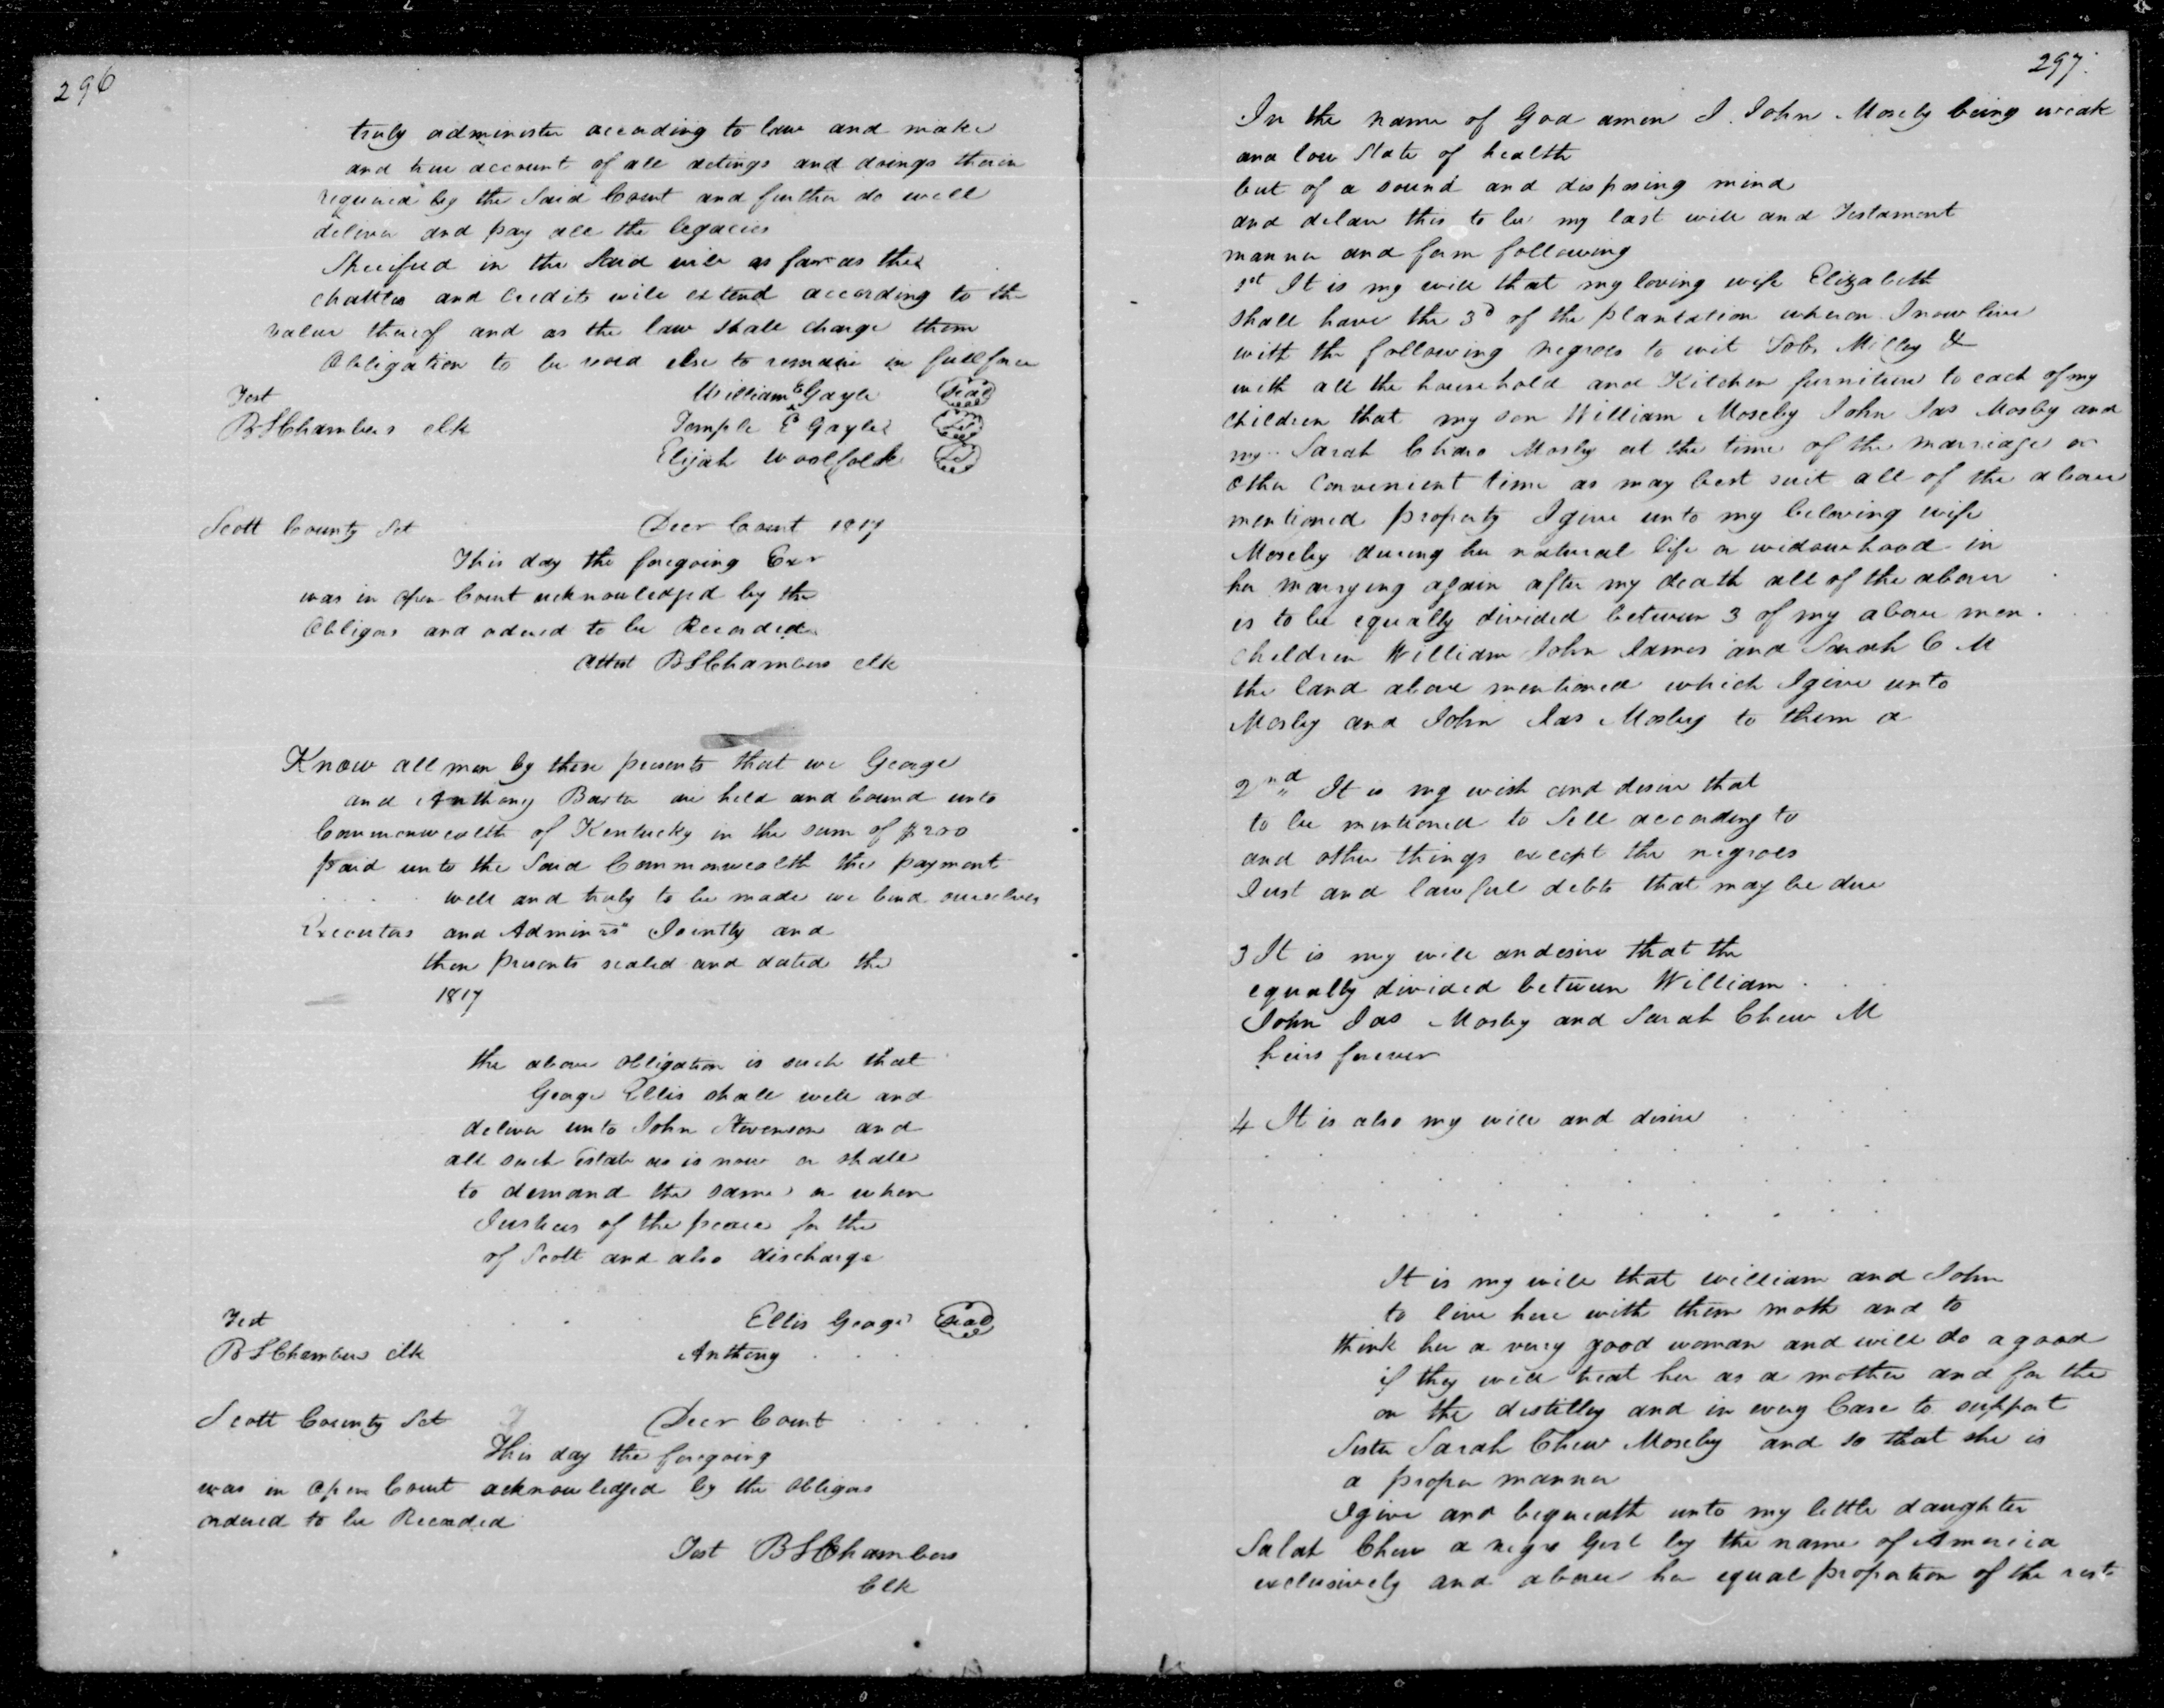 296
truly administer according to law and make
and true account of all actings and doings therein
required by the Said Court and further do well
deliver and pay all the legacies
Specified in the Said will as far as the
chattles and Credits will extend according to the
value thereof and as the law shall charge them
Obligation to be void else to remain in full force
Test William Gayle Seal
B S Chambers clk Temple E Gayle
Elijah Woolfolk
Scott County Sct Decr Court 1817
This day the foregoing
was in open Court acknowledged by the
Obligors and ordered to be Recorded
Attest B S Chambers clk
Know all men by these presents that we George
and Anthony are held and bound unto
Commonwealth of Kentucky in the sum of $200
paid unto the Said Commonwealth the payment
well and truly to be made we bind ourselves
Executors and Adminrs Jointly and
these presents sealed and dated the
1817
the above obligation is such that
George Ellis shall well and
deliver unto John Stevenson and
all such Estate as is now or shall
to demand the same or when
Justices of the peace for the
of Scott and also discharge
Test Ellis George Seal
B S Chambers clk Anthony
Scott County Sct Decr Court
This day the foregoing
was in open Court acknowledged by the obligors
ordered to be Recorded
Test B S Chambers
Clk
297
In the name of God amen I John Moseby being weak
and low State of health
but of a sound and disposing mind
and delare this to be my last will and Testament
manner and form following
1st It is my will that my loving wife Elizabeth
shall have the 3d of the plantation whereon I now live
with the following negroes to wit Milley &
with all the household and Kitchen furniture to each of my
children that my son William Moseby John Jas Mosby and
my Sarah Mosby at the time of the marriage or
other Convenient time as may best suit all of the above
mentioned property I give unto my beloving wife
Moseby during her natural life or widowhood in
her marrying again after my death all of the above
is to be equally divided between 3 of my above men
children William John James and Sarah C M
the land above mentioned which I give unto
Mosby and John Jas Mosby to them a
2nd It is my wish and desire that
to be mentioned to Sell according to
and other things except the negroes
Just and lawful debts that may be due
3 It is my will andesire that the
equally divided between William
John Jas Mosby and Sarah Chew M
heirs forever
4 It is also my will and desire
It is my will that william and John
to live here with them moth and to
think her a very good woman and will do a good
if they will treat her as a mother and for the
on the distilley and in every Case to support
Sister Sarah Chew Moseby and so that she is
a proper manner
I give and bequeath unto my little daughter
Salah Chew a negro Girl by the name of America
exclusively and above her equal proportion of the rest